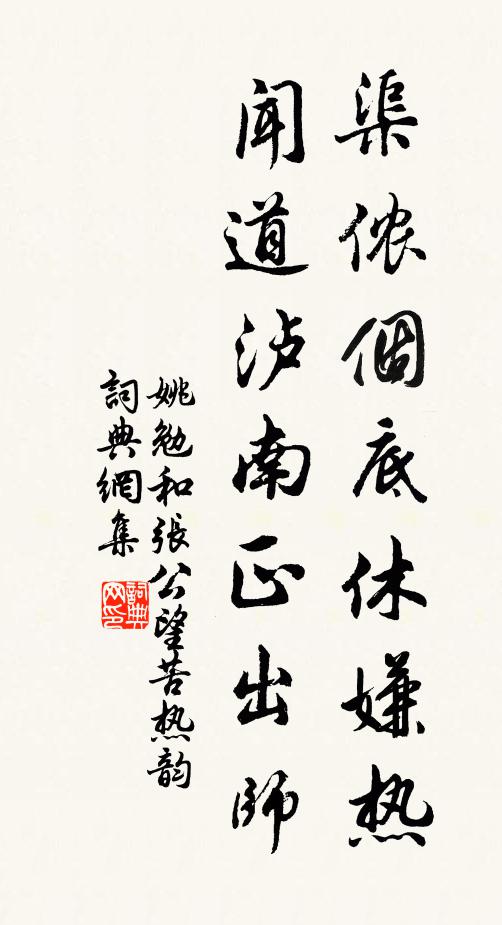 渠侬個底休嫌热
闻道泸南正出師
姚勉和張公望苦热韵
詞典網集
詞典网印